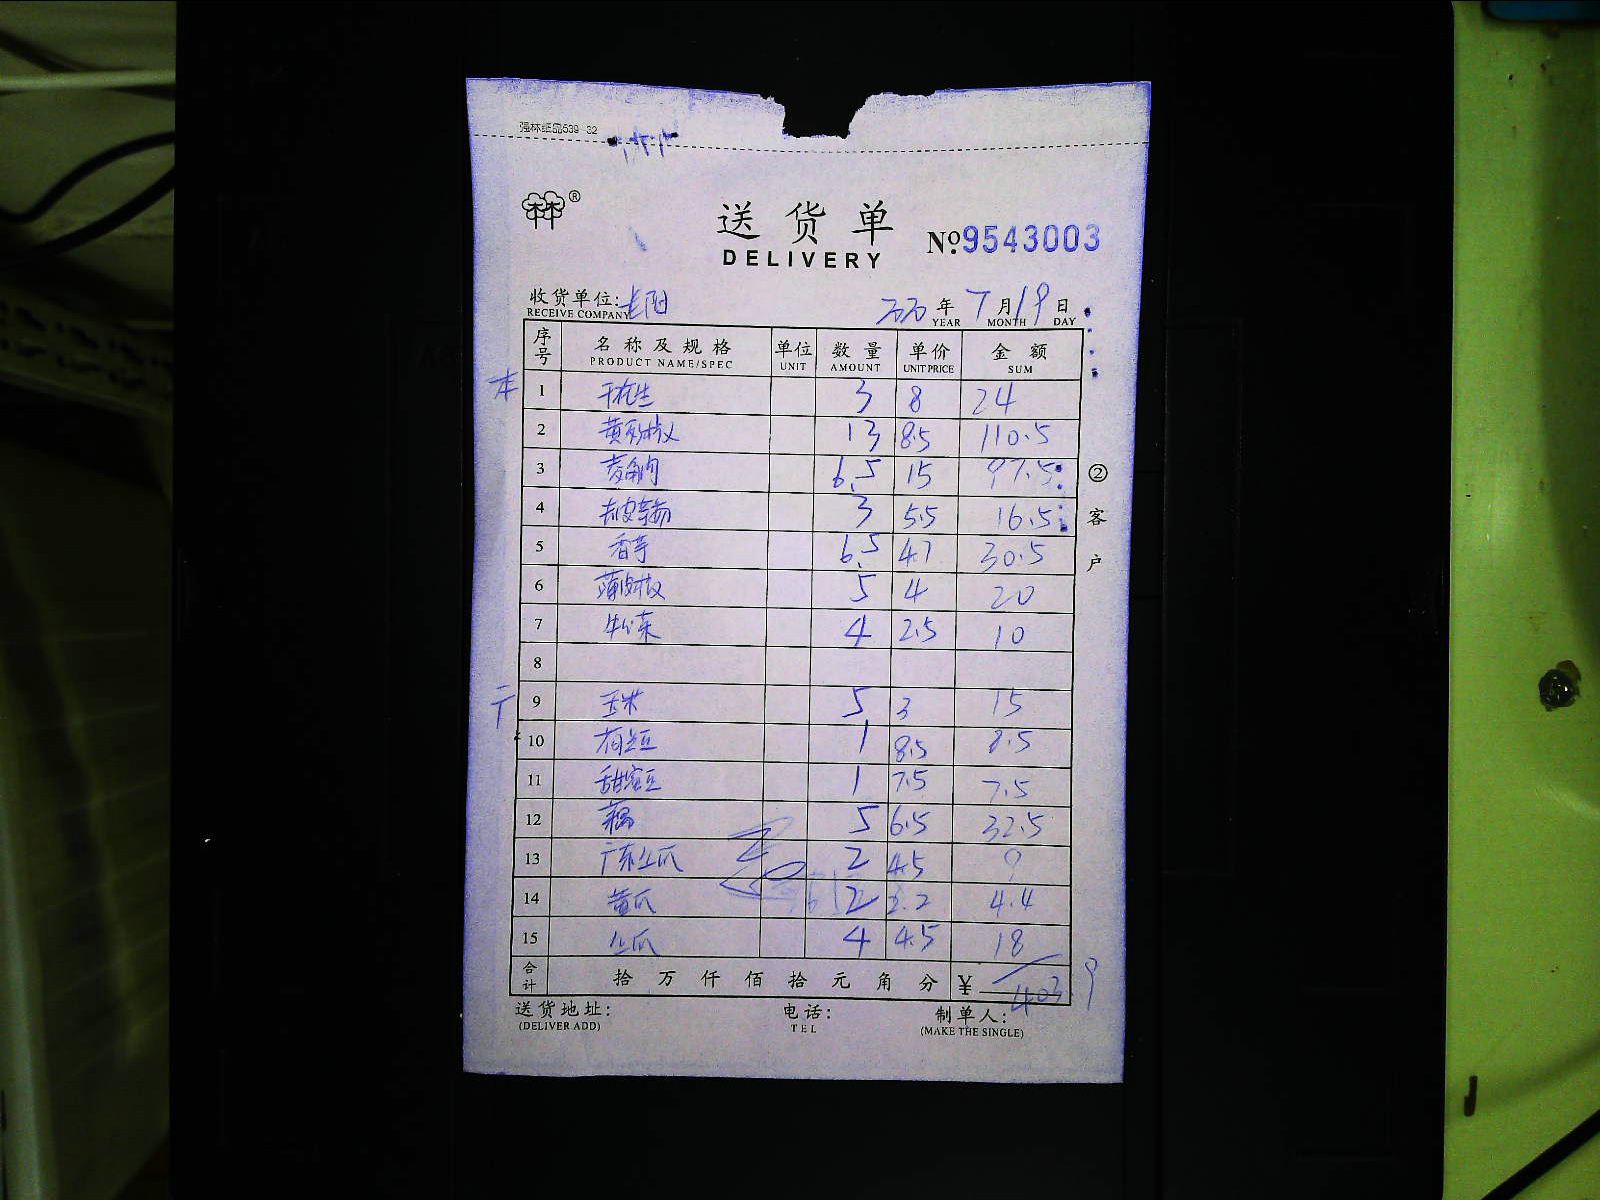 强林纸品539-32
®
送货单
DELIVERY
No.9543003
收货单位:长阳
RECEIVE COMPANY
年 7月19日
YEAR MONTH DAY
序号 名称及规格 单位 数量 单价 金额
PRODUCT NAME/SPEC UNIT AMOUNT UNIT PRICE SUM
本 1 干花生 3 8 24
2 13 8.5 110.5
3 6.5 15 97.5
4 3 5.5 16.5
5 香芋 6.5 4.7 30.5
6 薄皮椒 5 4 20
7 牛心菜 4 2.5 10
8
9 玉米 5 3 15
10 荷兰豆 1 8.5 8.5
11 甜蜜豆 1 7.5 7.5
12 藕 5 6.5 32.5
13 广东丝瓜 2 4.5 9
14 黄瓜 2 2.2 4.4
15 丝瓜 4 4.5 18
合计 拾 万 仟 佰 拾 元 角 分 ¥ 403.9
送货地址: 电话: 制单人:
(DELIVER ADD) TEL (MAKE THE SINGLE)
② 客户